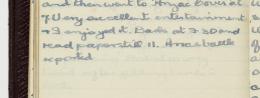 and then went to Anzac Bovis at
7. Very excellent entertainment
& I enjoyed it. Back at 9.30 and
read papers till 11. Anac battle
reported